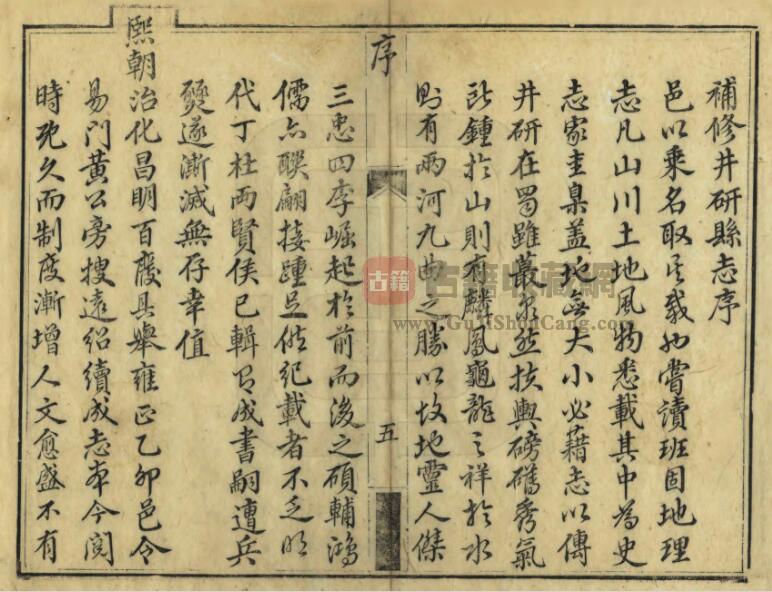 補修井研縣志序
邑以乘名取其載也嘗讀班固地理
志凡山川土地風物悉載其中為史
志家圭臬蓋地無大小必藉志以傳
井研在蜀雖叢尒然扶輿磅礴秀氣
所鍾於山則有麟鳳龜龍之祥於水
則有兩河九曲之勝以故地靈人傑
序
五
三忠四李崛起於前而後之碩輔鴻
儒亦聯翩接踵足供紀載者不乏明
代丁杜兩賢侯已輯有成書嗣遭兵
燹遂漸滅無存幸值
熙朝治化昌明百廢具舉雍正乙卯邑令
易門黃公旁搜遠紹續成志本今閱
時既久而制度漸增人文愈盛不有
古籍
古籍收藏網
www.GuJiShouCang.com